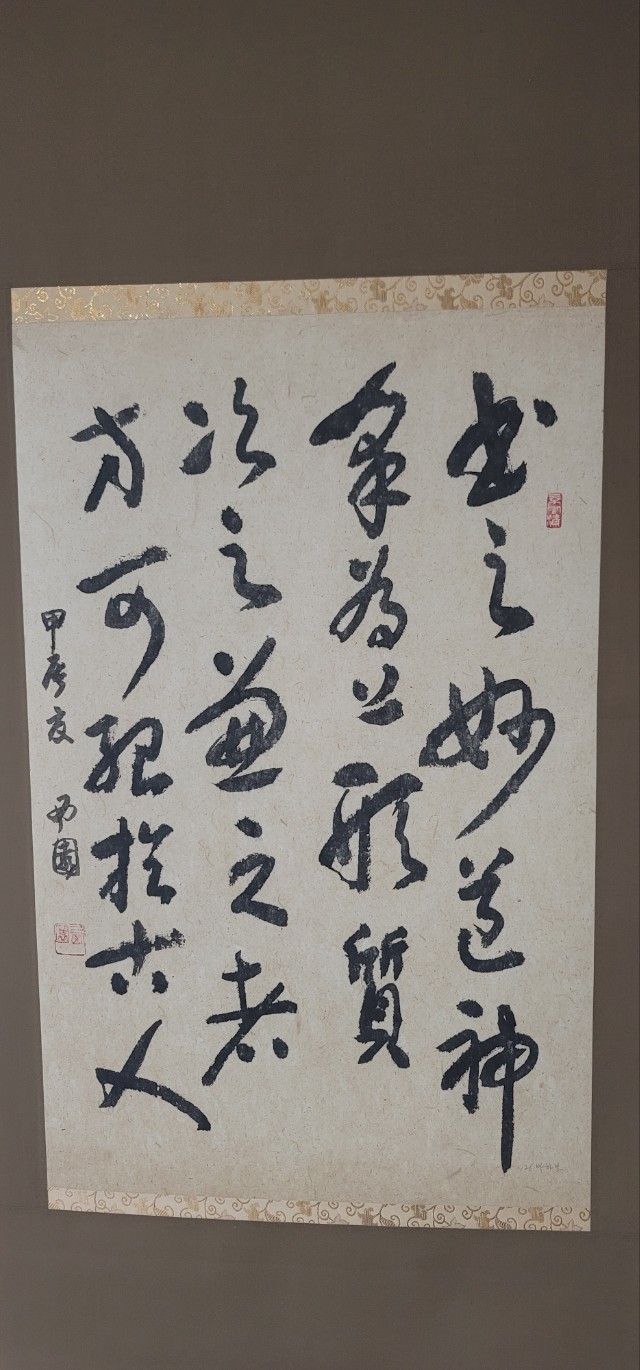 書之妙道神
采為上形質
次之兼之者
方可紹於古人
甲辰夏 園